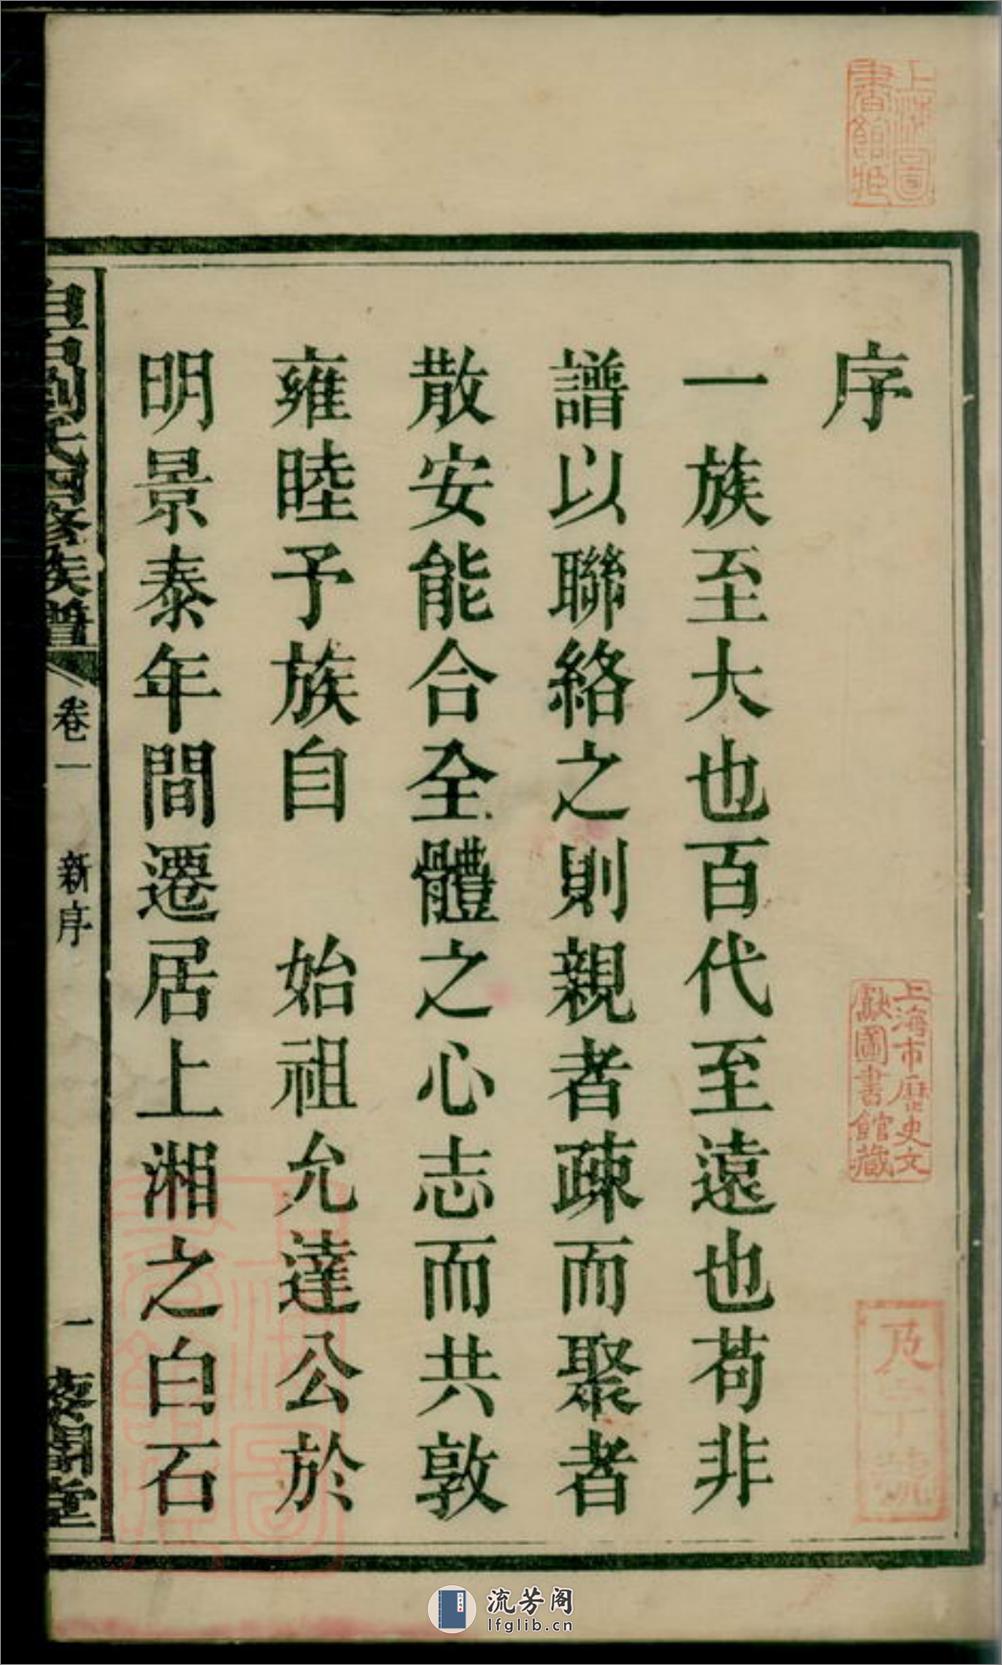 序
一族至大也百代至遠也苟非
譜以聯絡之則親者疎而聚者
散安能合全體之心志而共敦
雍睦予族自　始祖允達公於
明景泰年間遷居上湘之白石
劉氏四修族譜
卷一
新序
一
堂
上海圖
書館
上海市歷史文
獻圖書館藏
流芳阁
lfglib.cn